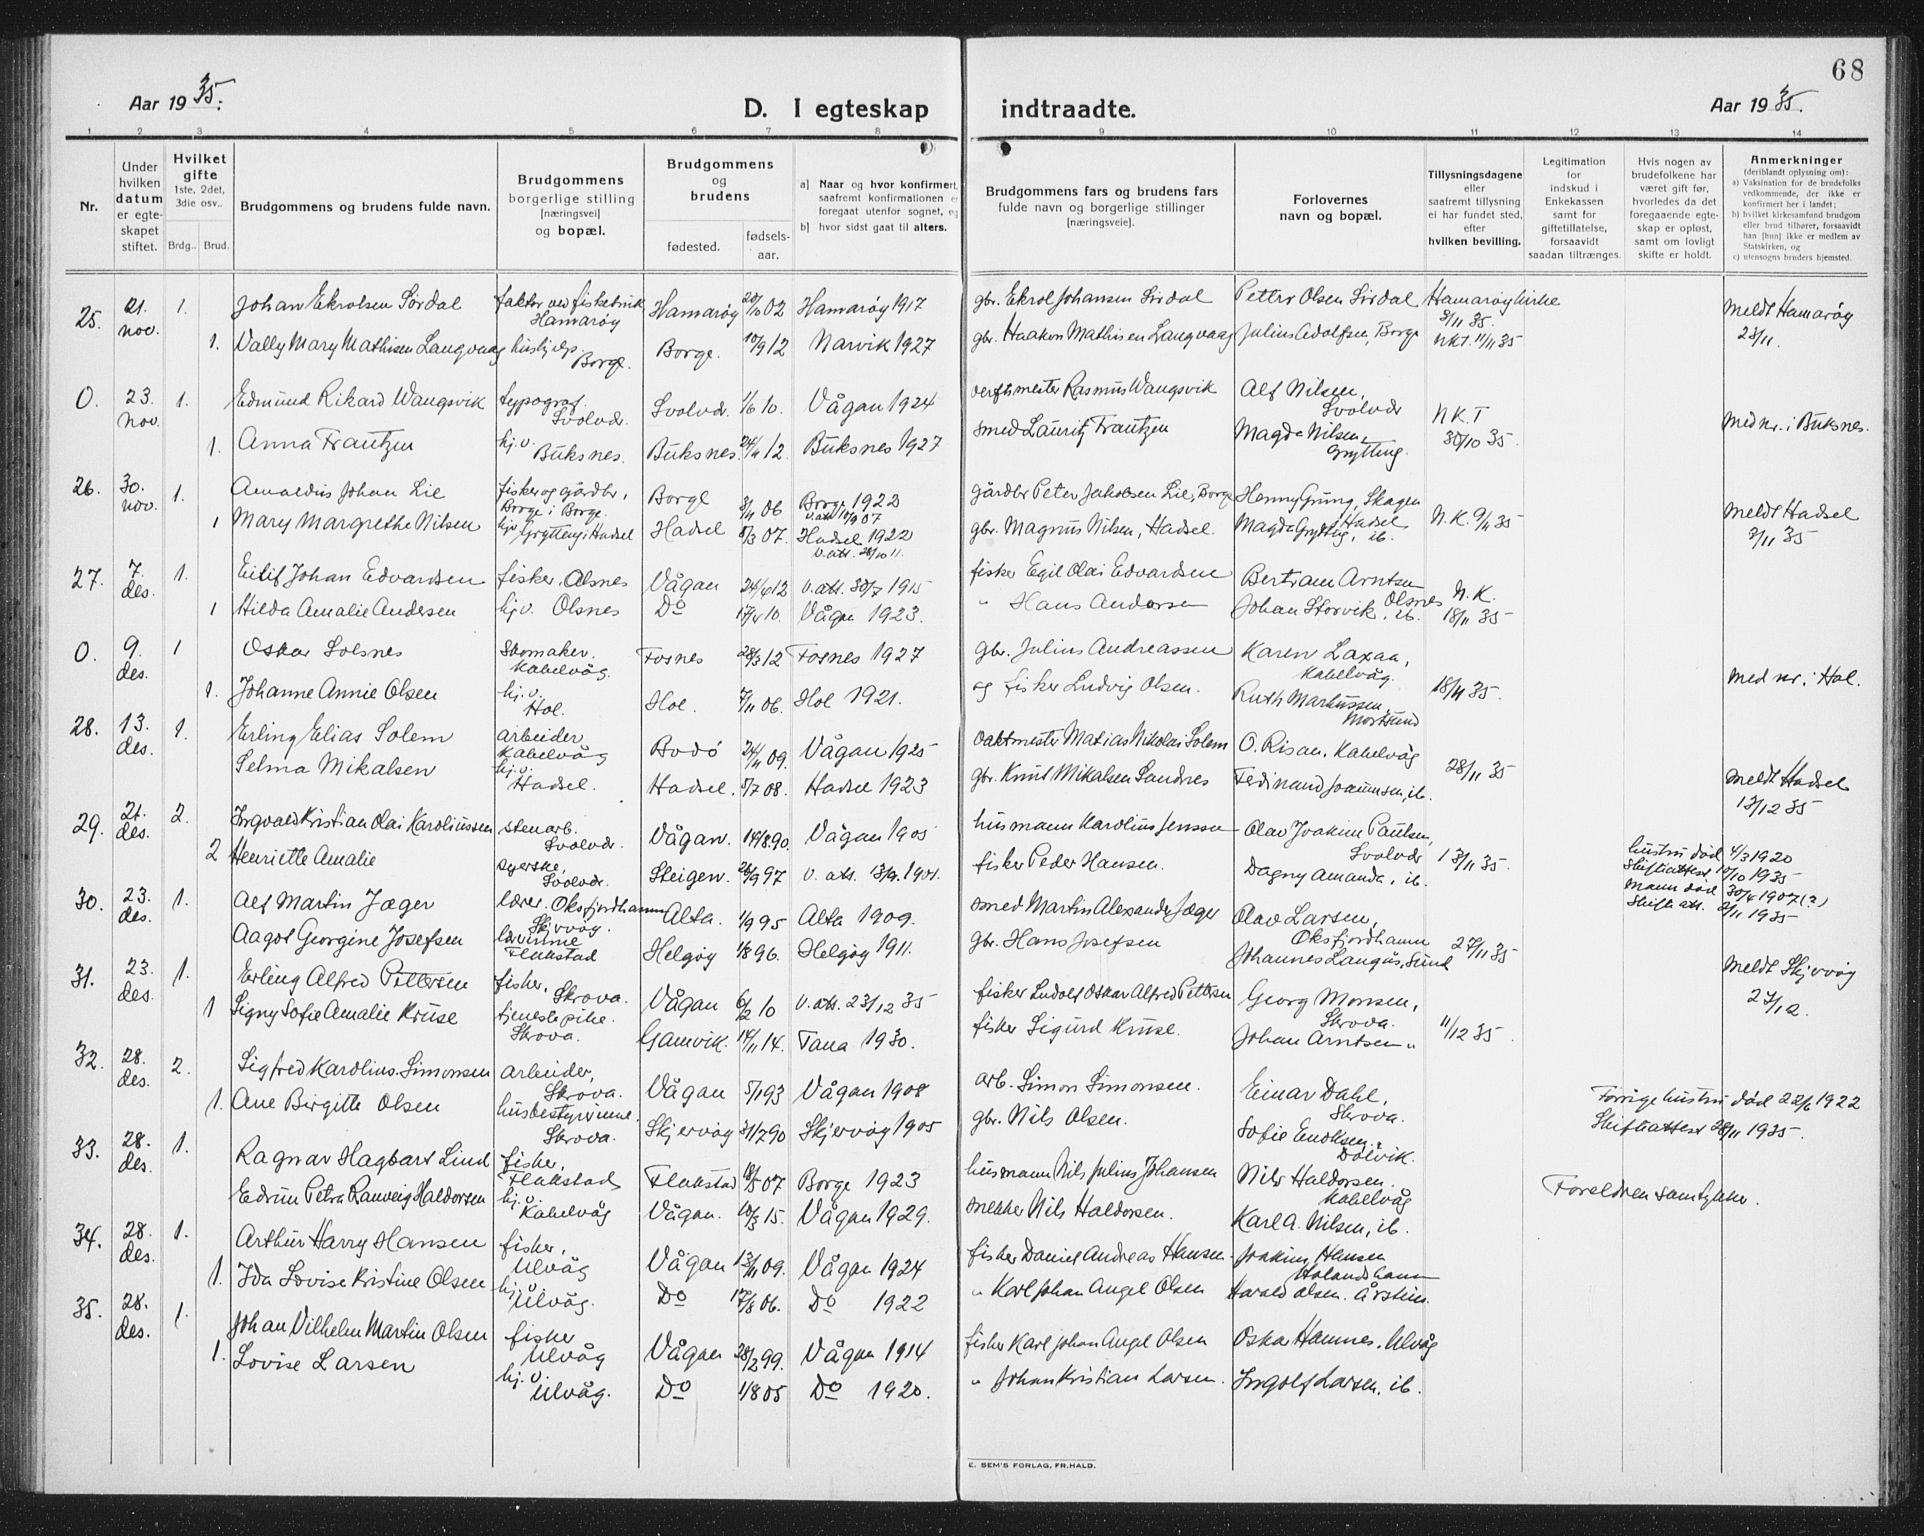 68
Aar 1935.
D. I egteskap indtraadte.
Aar 1935.
1 2 3 4 5 6 7 8 9 10 11 12 13 14
Nr.
Under hvilken datum er egteskapet stiftet.
Hvilket gifte 1ste, 2det, 3die osv..
Brdg.. Brud.
Brudgommens og brudens fulde navn.
Brudgommens borgerlige stilling [næringsvei] og bopæl.
Brudgommens og brudens
fødested.
fødselsaar.
a] Naar og hvor konfirmert, saafremt konfirmationen er foregaat utenfor sognet, og
b] hvor sidst gaat til alters.
Brudgommens fars og brudens fars fulde navn og borgerlige stillinger [næringsveie].
Forlovernes navn og bopæl.
Tillysningsdagene eller saafremt tillysning ei har fundet sted, efter hvilken bevilling.
Legitimation for indskud i Enkekassen samt for giftetillatelse, forsaavidt saadan tiltrænges.
Hvis nogen av brudefolkene har været gift før, hvorledes da det foregaaende egteskap er opløst, samt om lovligt skifte er holdt.
Anmerkninger (deriblandt oplysning om):
a) Vaksination for de brudefolks vedkommende, der ikke er konfirmert her i landet;
b) hvilket kirkesamfund brudgom eller brud tilhører, forsaavidt han [hun] ikke er medlem av Statskirken, og
c) utensogns bruders hjemsted.
25. 21. nov. 1. Johan Ekrolsen Sørdal faktor ved fiskebruk Hamarøy Hamarøy 20/10 02 Hamarøy 1917 gbr. Ekrol Johansen Sørdal Petter Olsen Sørdal Hamarøy kirke 3/11 35. meldt Hamarøy 23/11.
1. Vally Mary Mathisen Langvaag hushjelp Borge. Borge. 10/9 12 Narvik 1927 gbr. Haakon Mathisen Langvaag Julius Adolfsen, Borge NKT. 11/11 35
0. 23. nov. 1. Edmund Rikard Wangsvik typograf Svolvær. Svolvær. 1/6 10. Vågan 1924 verftmester Rasmus Wangsvik Alf Nilsen, Svolvær N.K.T 30/10 35. med nr. i Buksnes.
1. Anna Frantzen hj.v. Buksnes. Buksnes. 24/4 12. Buksnes 1927 smed Lauritz Frantzen Magda Nilsen, Grytting.
26. 30. nov. 1. Arnoldus Johan Lie fisker og gårdbr. Borge i Borge. Borge 3/11 06 Borge 1922 v.att. 10/9 07 gårdbr Peter Jakobsen Lie, Borge Henny Grung, Skagen Hadsel N.K. 9/11 35 meldt Hadsel 3/11 35
1 Mary Margrethe Nilsen hjv Grytting i Hadsel Hadsel 5/3 07. Hadsel 1922 v.att. 28/10 11. gbr. Magnus Nilsen, Hadsel. Magda Grytting, ib.
27. 7. des. 1. Eilif Johan Edvardsen fisker, Olsnes Vågan 24/6 12 v.att. 30/7 1915 fisker Egil Olai Edvardsen Bertram Arntsen Olsnes N.K. 18/11 35
1 Hilda Amalie Andersen hj.v. Olsnes Do 17/4 10. Vågan 1923. " Hans Andersen Johan Storvik, ib.
0. 9. des. 1 Oskar Solsnes Skomaker. Kabelvåg. Fosnes 28/3 12 Fosnes 1927 gbr. Julius Andreassen Karen Laxaa, Kabelvåg. 18/11 35. med nr. i Hol.
1. Johanne Annie Olsen hj.v. Hol. Hol. 7/11 06. Hol 1921. og fisker Ludvig Olsen. Ruth Markussen, Mortsund
28. 13. des. 1. Erling Elias Solem arbeider Kabelvåg Bodö 24/11 09. Vågan 1925 vaktmester Matias Nikolai Solem O. Risan. Kabelvåg 28/11 35 meldt Hadsel 13/12 35
Selma Mikalsen hj.v. Hadsel. Hadsel. 5/7 08. Hadsel 1923 gbr. Knut Mikalsen Sandnes Ferdinand Joaumsen, ib.
29. 21. des. 2. Ingvald Kristian Olai Karoliussen stenarb. Svolvær. Vågan. 14/8 90. Vågan 1905 husmann Karolius Jenssen Olav Joakim Paulsen, Svolvær 13/11 35. hustru död 4/3 1920 Skifteattest 10/10 1935
2 Henriette Amalie syerske, Svolvær. Steigen. 26/9 97 v. att. 13/9. 1901. fisker Peder Hansen. Dagny Amanda, ib. mann död 30/4 1907(?) Skifte att. 2/11 1935
30. 23. des. 1. Alf Martin Jæger lærer. Oksfjordhamn Skjervøy. Alta. 1/9 95 Alta 1909. smed Martin Alexander Jæger Olav Larsen, Oksfjordhamn 27/11 35 meldt Skjervøy 27/12.
Aagot Georgine Josefsen lærerinne Flakstad Helgøy 1/8 96. Helgøy 1911. gbr. Hans Josefsen Johannes Langås, Sund
31. 23. des. 1. Erling Alfred Pettersen fisker, Skrova. Vågan 6/2 10 v. att. 23/12 35 fisker Ludolf Oskar Alfred Pettersen Georg Monsen, Skrova. 11/12 35.
1 Signy Sofie Amalie Kruse tjenestepike. Skrova. Gamvik. 14/11 14. Tana 1930. fisker Sigurd Kruse. Johan Arntsen "
32. 28. des. 2. Sigfred Karolius Simonsen arbeider, Skrova. Vågan 5/1 93 Vågan 1908 arb. Simon Simonsen. Einar Dahl, Skrova. Forrige hustru död 22/6 1922
1. Ane Birgitte Olsen husbestyrinne. Skrova. Skjervøy 31/7 90 Skjervøy 1905 gbr. Nils Olsen. Sofie Enoksen, Dalvik. Skifteattest 28/11 1935.
33. 28. des. 1. Ragnar Hagbart Lind fisker, Flakstad Flakstad 18/5 07 Borge 1923 husmann Nils Julius Johansen Nils Haldorsen. Kabelvåg Foreldren samtykke.
Edrun Petra Ranveig Haldorsen hj.v. Kabelvåg Vågan. 10/3 15. Vågan 1929. snekker Nils Haldorsen. Karl A. Nilsen, ib.
34. 28. des. 1. Arthur Harry Hansen fisker, Ulvåg Vågan 13/11 09. Vågan 1924 fisker Daniel Andreas Hansen. Joakim Hansen Holandshamn
1. Ida Lovise Kristine Olsen hj.v. Ulvåg. Do 17/8 06. Do 1922 " Karl Johan Angel Olsen Harald Olsen. Årstein.
35. 28. des. 1. Johan Vilhelm Martin Olsen fisker Ulvåg Vågan 28/2 99. Vågan 1914 fisker Karl Johan Angel Olsen Oskar Hamnes. Ulvåg
1. Lovise Larsen hj.v. Ulvåg. Do 1/8 05 Do 1920. " Johan Kristian Larsen. Ingolf Larsen, ib.
E. SEM'S FORLAG, FR.HALD.